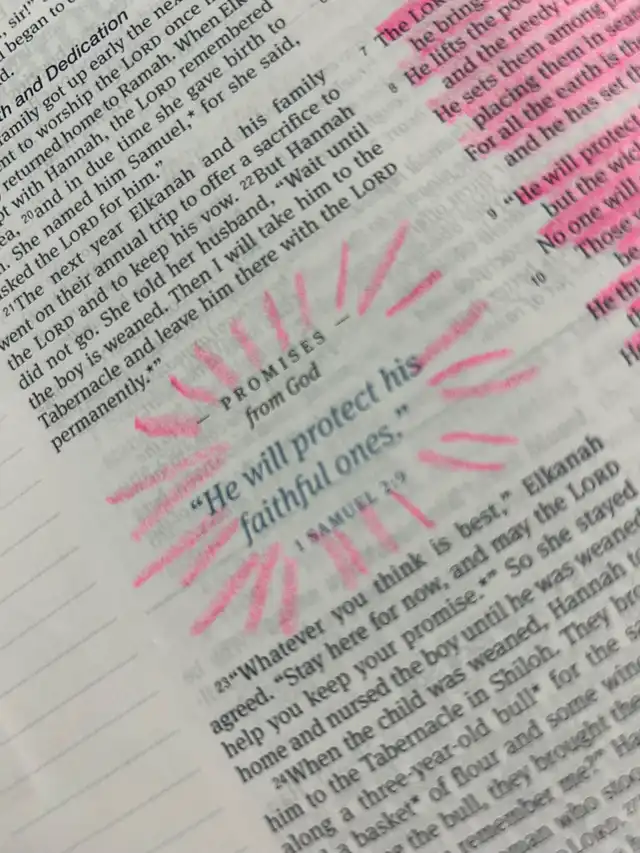 sir!"
began to
th and Dedication
family got up early the nex
nt to worship the LORD once
returned home to Ramah. When Elk
t with Hannah, the LORD remembered
ea, 20and in due time she gave birth to
She named him Samuel,* for she said,
asked the LORD for him."
21The next year Elkanah and his family
went on their annual trip to offer a sacrifice to
the LORD and to keep his vow. 22But Hannah
did not go. She told her husband, "Wait until
the boy is weaned. Then I will take him to the
Tabernacle and leave him there with the LORD
permanently.*"
— PROMISES —
from God
"He will protect his
faithful ones."
1 SAMUEL 2:9
23"Whatever you think is best," Elkanah
agreed. "Stay here for now, and may the LORD
help you keep your promise.*" So she stayed
home and nursed the boy until he was weaned
24When the child was weaned, Hannah to
him to the Tabernacle in Shiloh. They bro
along a three-year-old bull* for the sa
a basket* of flour and some win
g the bull, they brought the
remember me?" Ha
man who stoo
LORD
7 The LOR
he bring
8 He lifts the poo
and the needy
He sets them among
placing them in sea
For all the earth is the
and he has set t
9 "He will protec
but the wick
No one will
10 Those
be
He th
He